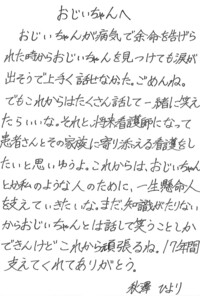 おじいちゃんへ
おじいちゃんが病気で余命を告げら
れた時からおじいちゃんを見つけても涙が
出そうで上手く話せなかった。ごめんね。
でもこれからはたくさん話して一緒に笑え
たらいいな。それと、将来看護師になって
患者さんとその家族に寄り添える看護をし
たいと思いゆうよ。これからは、おじいちゃん
とか私のような人のために、一生懸命人
を支えていきたいな。まだ、知識がたりない
からおじいちゃんとは話して笑うことしか
できんけどこれから頑張るね。17年間
支えてくれてありがとう。
秋澤 ひより